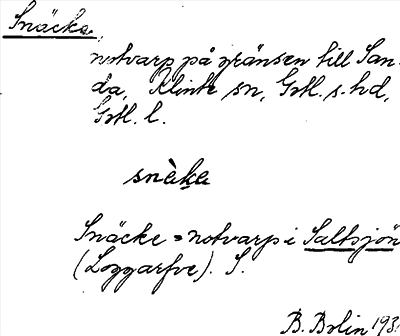 Snäcke,
notvarp på gränsen till San-
da, Klinte sn, Gotl. s. hd,
Gotl. l.
snèke
Snäcke = notvarp i Saltsjön
(Loggarfve). S.
B. Bolin 193